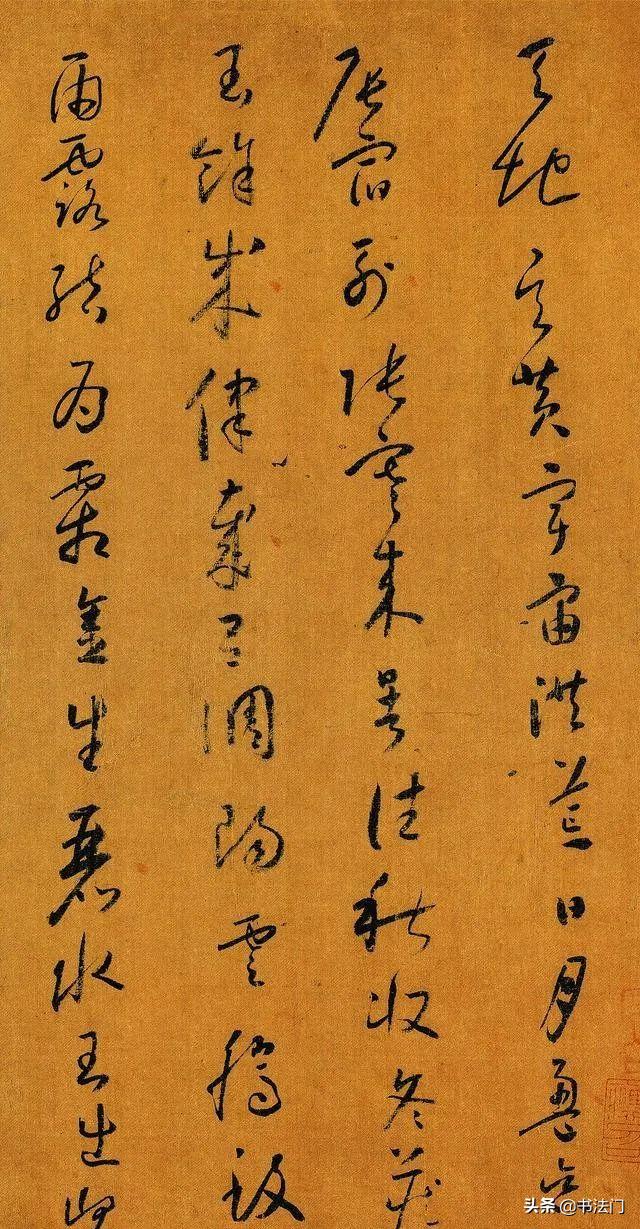 天地玄黄宇宙洪荒日月盈昃
辰宿列張寒來暑往秋收冬藏
閏餘成律歲呂調陽雲騰致
雨露結為霜金生麗水玉出崑
头条 @书法门